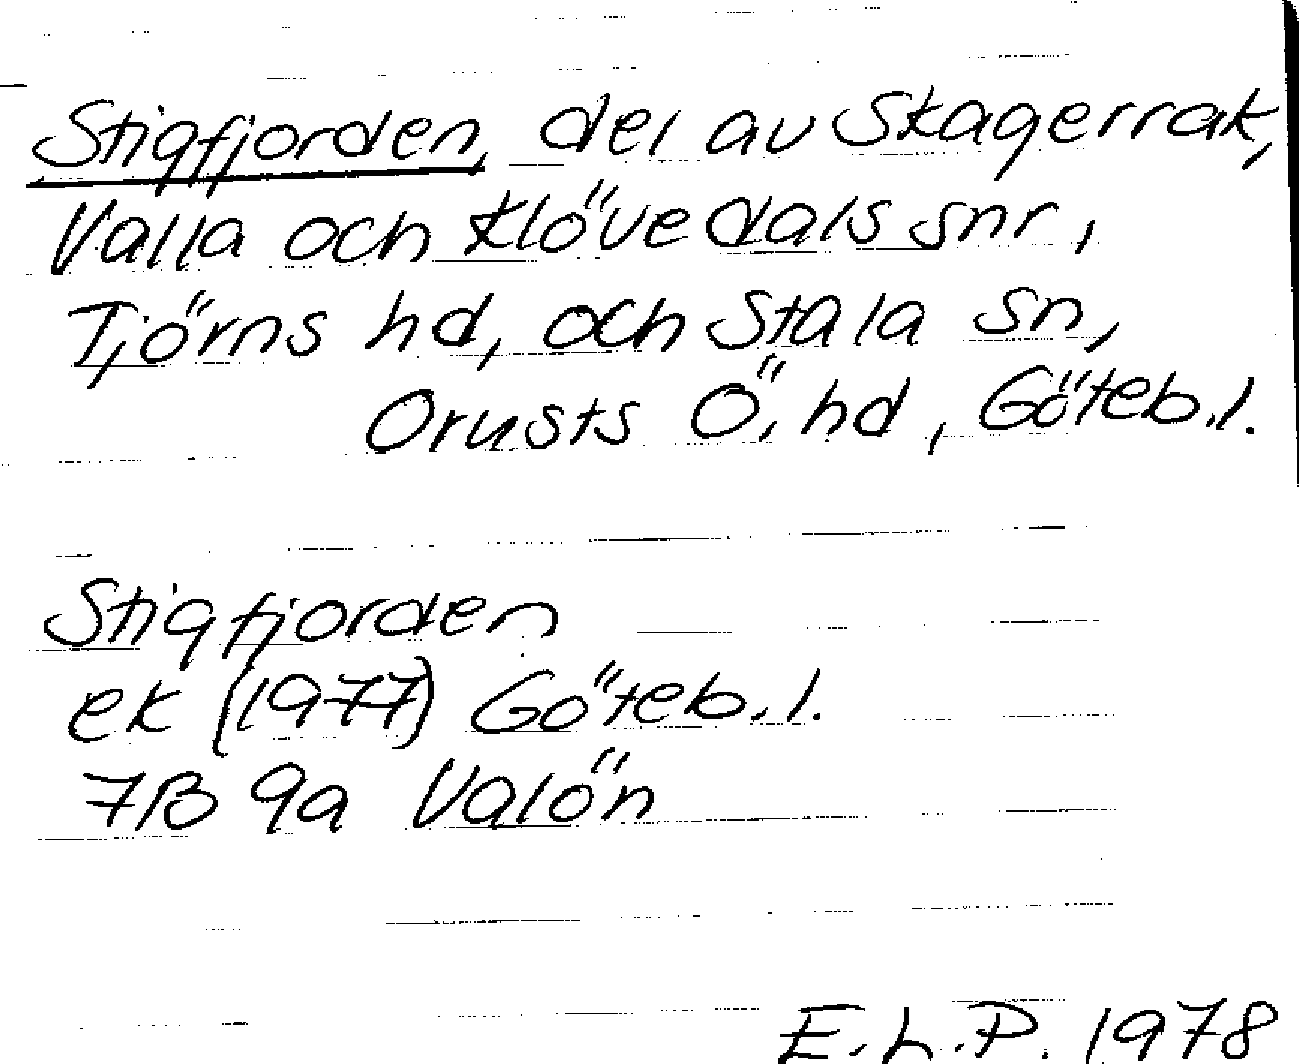 Stigfjorden, del av Skagerrak,
Valla och Klövedals snr,
Tjörns hd, och Stala sn,
Orusts Ö. hd, Göteb. l.
Stigfjorden
ek (1977) Göteb. l.
7B 9a Valön
E. L. P. 1978